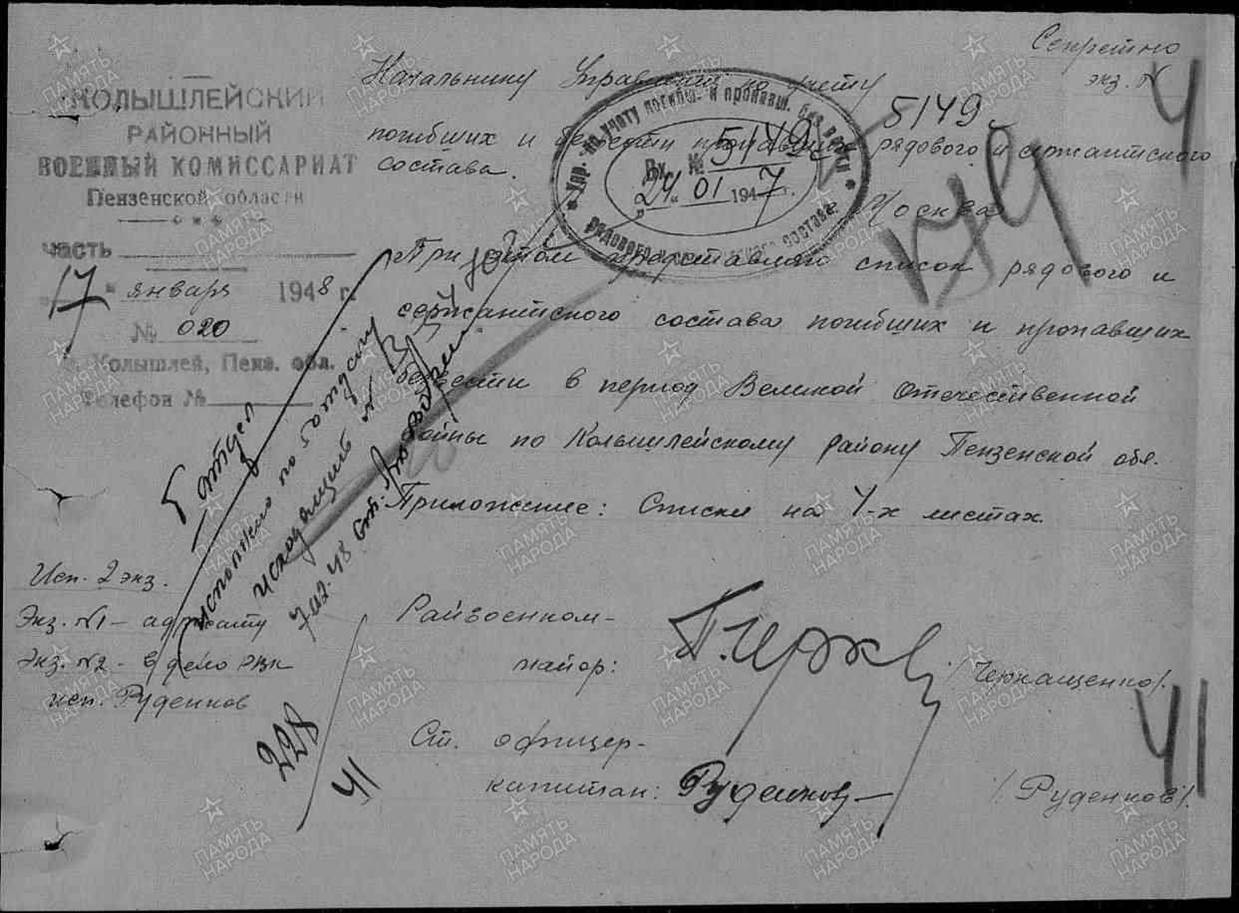 Секретно
экз. №
КОЛЫШЛЕЙСКИЙ
РАЙОННЫЙ
ВОЕННЫЙ КОМИССАРИАТ
Пензенской области
часть
"17" января 1948 г.
№ 020
Колышлей, Пенз. обл.
Телефон №
Начальнику Управления по учету
погибших и безвести пропавших рядового и сержантского
состава.
5149с
г. Москва
Упр. по учету погибш. и пропавш. без вести
рядового и сержантского состава
Вх. № 5149с
"24" 01 1947 г.
При этом представляю список рядового и
сержантского состава погибших и пропавших
безвести в период Великой Отечественной
войны по Колышлейскому району Пензенской обл.
Приложение: Списки на 4-х листах.
5 отдел
исполнено по 5 отделу
исходящий №
Исп. 2 экз.
Экз. №1 – адресату
Экз. №2 – в дело РВК
исп. Руденков
228
41
Райвоенком–
майор:
/Чернащенко/.
Ст. офицер–
капитан: Руденков
/Руденков/.
41
ПАМЯТЬ
НАРОДА